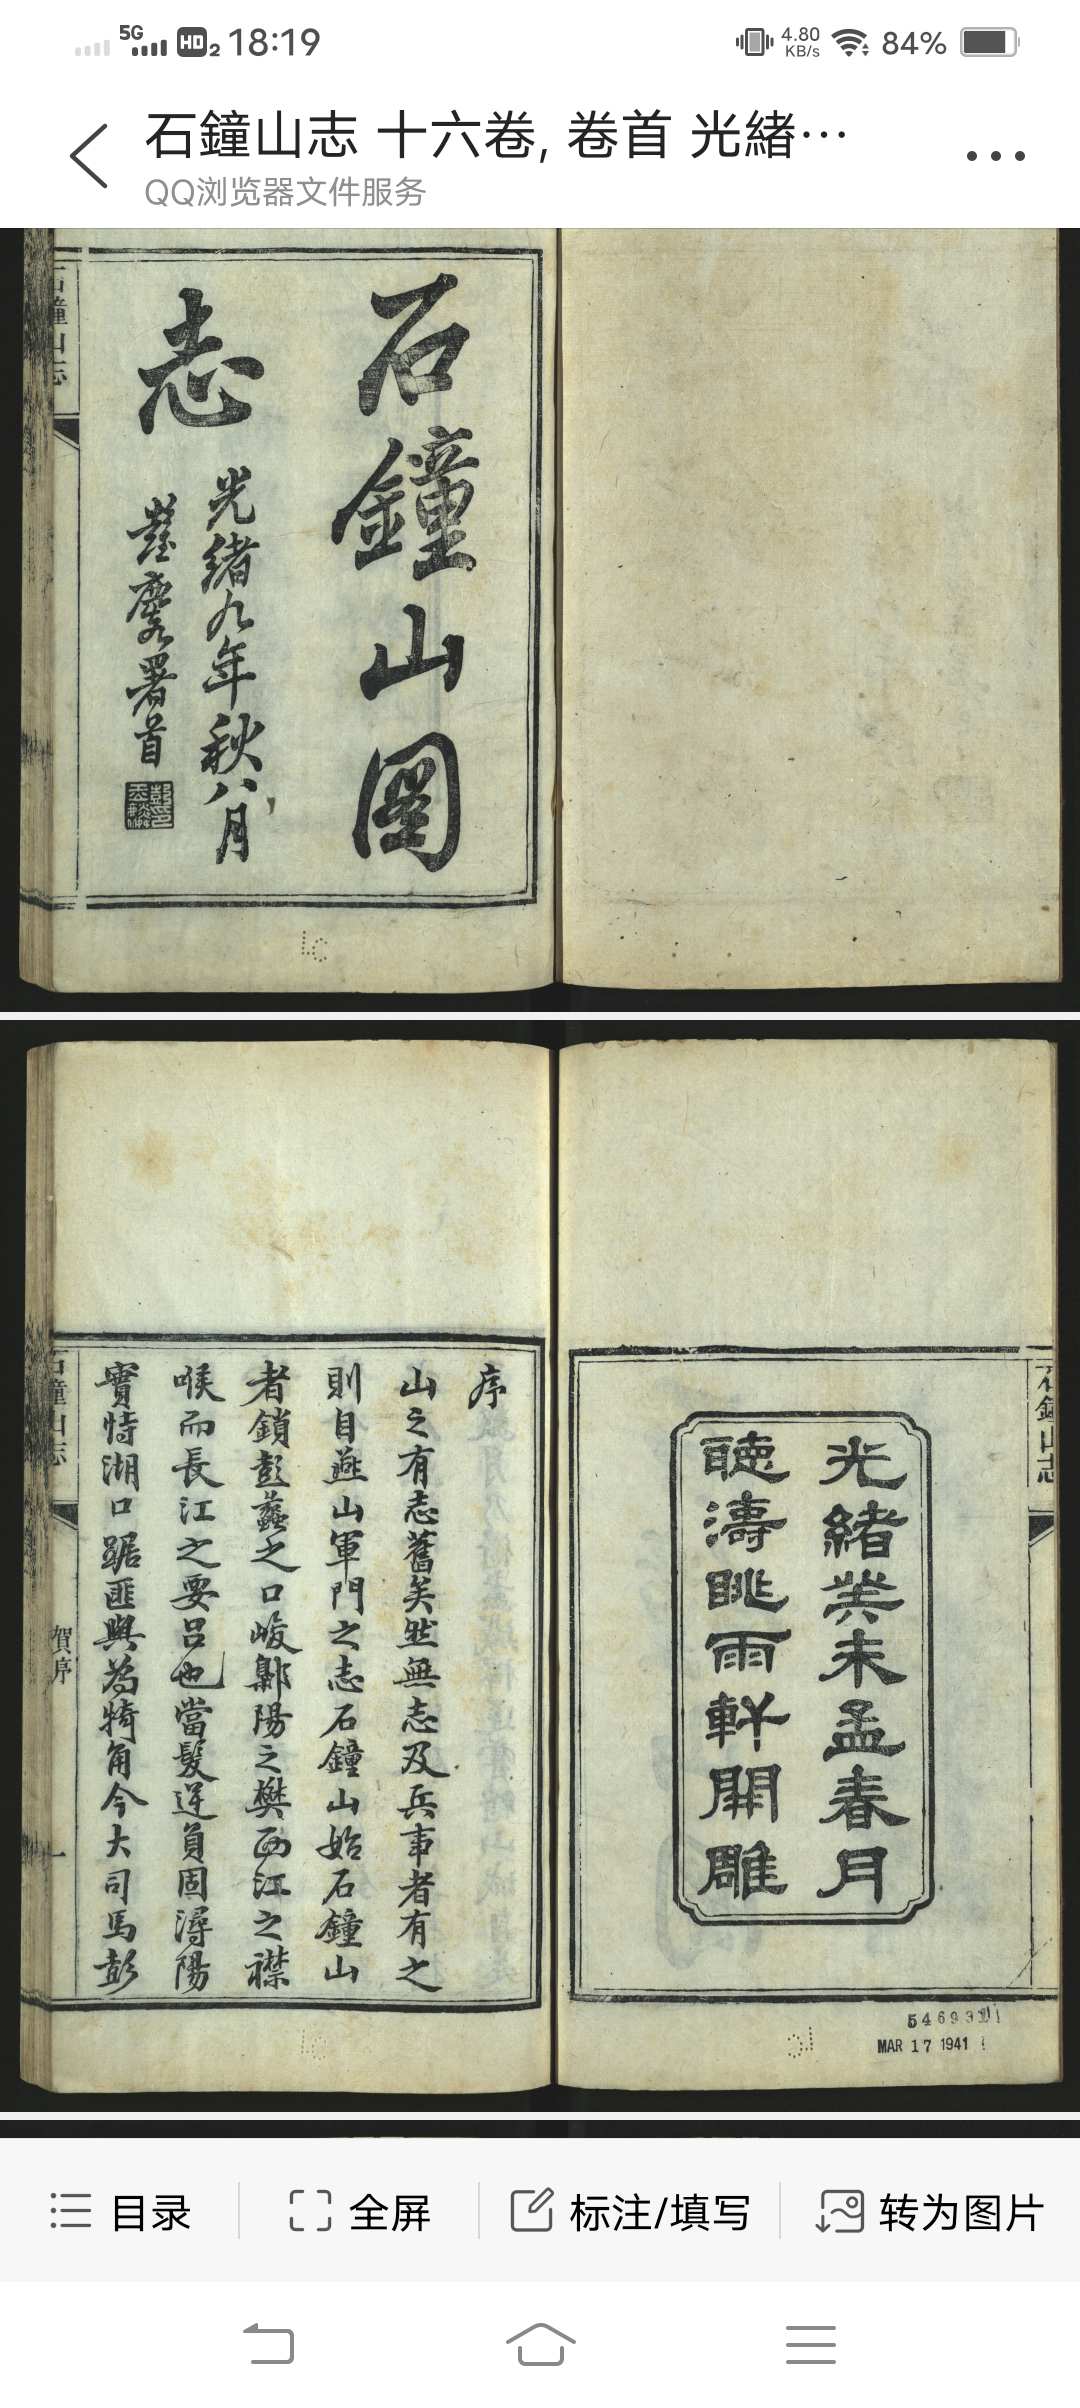 5G HD 2 18:19 4.80 KB/s 84%
石鐘山志 十六卷, 卷首 光緒…
QQ浏览器文件服务
石鐘山圖
志
光緒九年秋八月
署首
石鐘山志
光緒癸未孟春月
聽濤眺雨軒開雕
石鐘山志
546931
MAR 17 1941
序
山之有志舊矣然無志及兵事者有之
則自燕山軍門之志石鐘山始石鐘山
者鎖彭蠡之口峻鄡陽之樊西江之襟
喉而長江之要呂也當髮逆負固潯陽
實恃湖口踞匪與為犄角今大司馬彭
石鐘山志
賀序
一
目录
全屏
标注/填写
转为图片